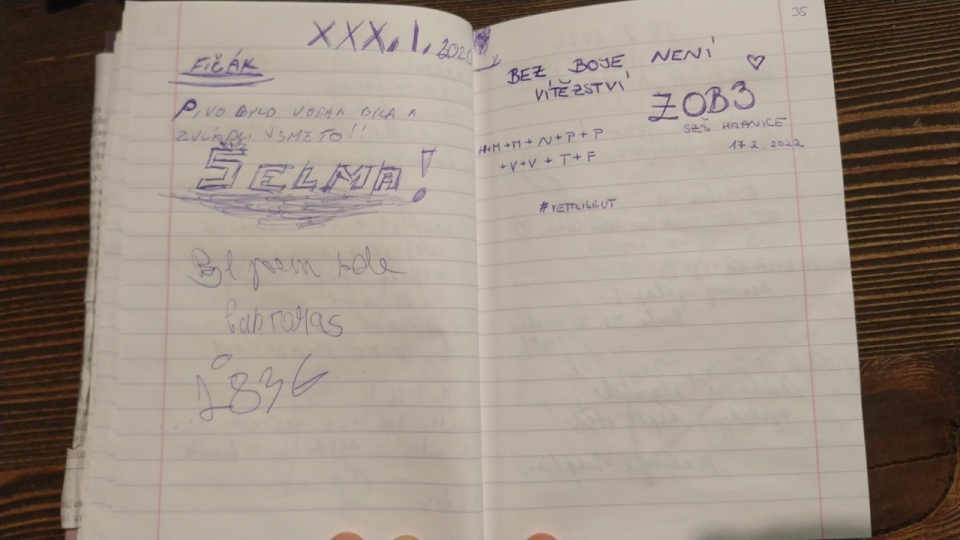 XXX.I.202
FIČÁK
PIVO BYLO VODNA BYLA A
ZVLÁDLI VSME TO!!
ŠELMA!
Byl jsem zde
1836
35
BEZ BOJE NENÍ ♡
VÍTĚZSTVÍ
ZOB3
SZŠ HRANICE
17.2.2022
H+M+M+N+P+P
+V+V+T+F
#VETRISGUT